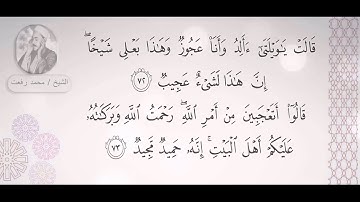 قَالَتْ يَٰوَيْلَتَىٰٓ ءَأَلِدُ وَأَنَا۠ عَجُوزٌ وَهَٰذَا بَعْلِى شَيْخًا ۖ
إِنَّ هَٰذَا لَشَىْءٌ عَجِيبٌ ٧٢
قَالُوٓا۟ أَتَعْجَبِينَ مِنْ أَمْرِ ٱللَّهِ ۖ رَحْمَتُ ٱللَّهِ وَبَرَكَٰتُهُۥ
عَلَيْكُمْ أَهْلَ ٱلْبَيْتِ ۚ إِنَّهُۥ حَمِيدٌ مَّجِيدٌ ٧٣
الشيخ / محمد رفعت